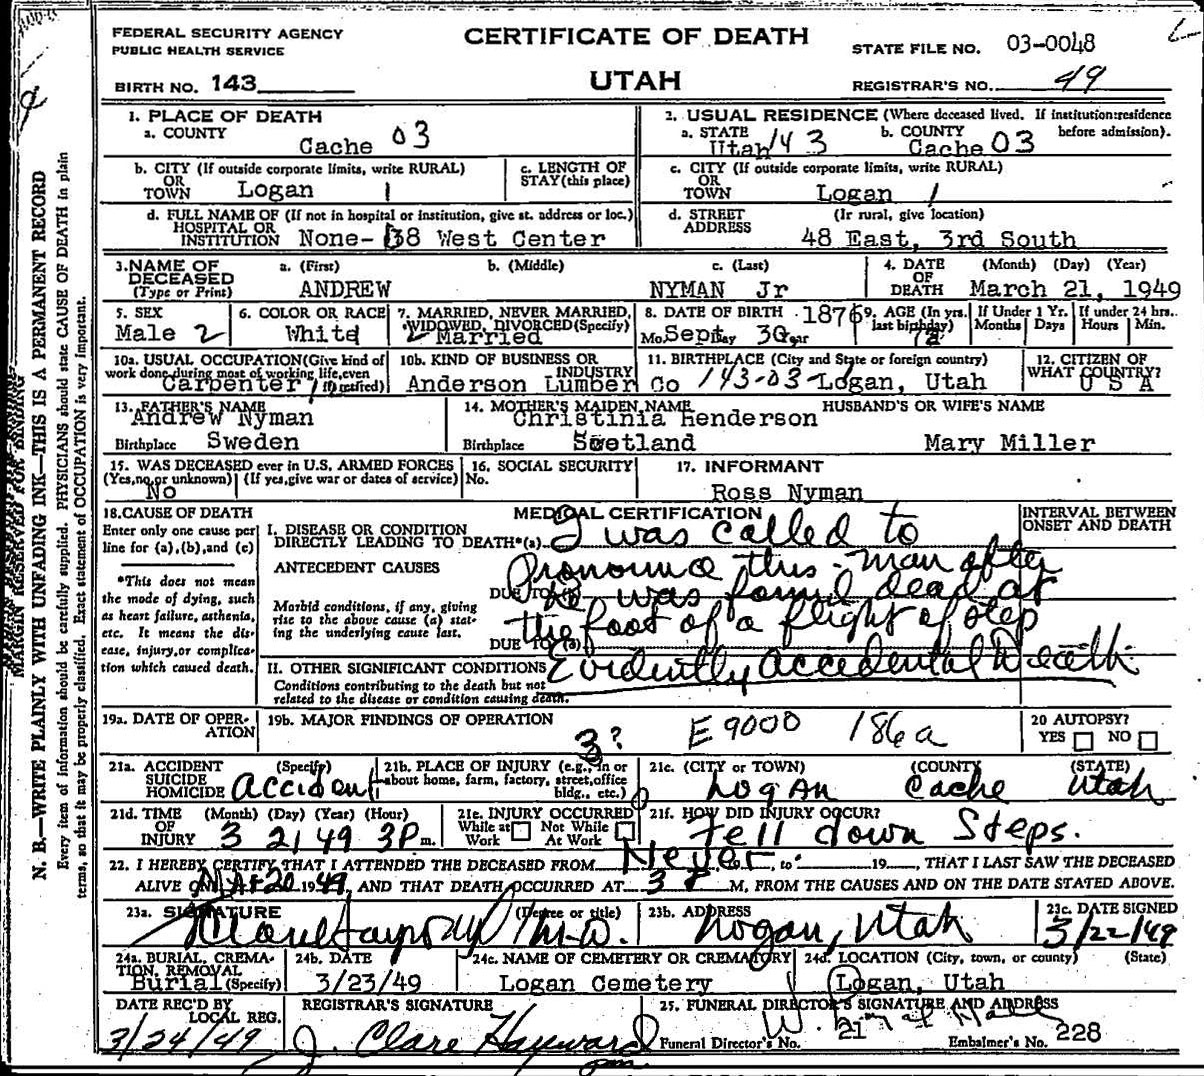 FEDERAL SECURITY AGENCY
PUBLIC HEALTH SERVICE
CERTIFICATE OF DEATH
UTAH
STATE FILE NO. 03-0048
BIRTH NO. 143
REGISTRAR'S NO. 49
N. B.—WRITE PLAINLY WITH UNFADING INK—THIS IS A PERMANENT RECORD
Every item of information should be carefully supplied. PHYSICIANS should state CAUSE OF DEATH in plain
terms, so that it may be properly classified. Exact statement of OCCUPATION is very important.
MARGIN RESERVED FOR BINDING
1. PLACE OF DEATH
a. COUNTY
Cache 03
2. USUAL RESIDENCE (Where deceased lived. If institution:residence
before admission).
a. STATE Utah 143
b. COUNTY Cache 03
b. CITY (If outside corporate limits, write RURAL)
OR
TOWN Logan 1
c. LENGTH OF
STAY(this place)
c. CITY (If outside corporate limits, write RURAL)
OR
TOWN Logan 1
d. FULL NAME OF (If not in hospital or institution, give st. address or loc.)
HOSPITAL OR
INSTITUTION None- 38 West Center
d. STREET (If rural, give location)
ADDRESS
48 East, 3rd South
3. NAME OF
DECEASED
(Type or Print)
a. (First) b. (Middle) c. (Last)
ANDREW NYMAN Jr
4. DATE (Month) (Day) (Year)
OF
DEATH March 21, 1949
5. SEX
Male 2
6. COLOR OR RACE
White
7. MARRIED, NEVER MARRIED,
WIDOWED, DIVORCED(Specify)
2 Married
8. DATE OF BIRTH 1876
Mo. Sept Day 30 Year
9. AGE (In yrs.
last birthday)
72
If Under 1 Yr.
Months Days
If under 24 hrs.
Hours Min.
10a. USUAL OCCUPATION(Give kind of
work done during most of working life, even
if retired)
Carpenter
10b. KIND OF BUSINESS OR
INDUSTRY
Anderson Lumber Co
11. BIRTHPLACE (City and State or foreign country)
143-03-1 Logan, Utah
12. CITIZEN OF
WHAT COUNTRY?
U S A
13. FATHER'S NAME
Andrew Nyman
Birthplace Sweden
14. MOTHER'S MAIDEN NAME
Christinia Henderson
Birthplace Scotland
HUSBAND'S OR WIFE'S NAME
Mary Miller
15. WAS DECEASED ever in U.S. ARMED FORCES
(Yes,no,or unknown) (If yes,give war or dates of service)
No
16. SOCIAL SECURITY
No.
17. INFORMANT
Ross Nyman
18. CAUSE OF DEATH
Enter only one cause per
line for (a),(b),and (c)
*This does not mean
the mode of dying, such
as heart failure, asthenia,
etc. It means the dis-
ease, injury,or complica-
tion which caused death.
MEDICAL CERTIFICATION
INTERVAL BETWEEN
ONSET AND DEATH
I. DISEASE OR CONDITION
DIRECTLY LEADING TO DEATH*(a) I was called to
ANTECEDENT CAUSES pronounce this man after
DUE TO (b) he was found dead at
Morbid conditions, if any, giving
rise to the above cause (a) stat-
ing the underlying cause last.
the foot of a flight of step
DUE TO
II. OTHER SIGNIFICANT CONDITIONS Evidently accidental Death
Conditions contributing to the death but not
related to the disease or condition causing death.
19a. DATE OF OPER-
ATION
19b. MAJOR FINDINGS OF OPERATION
3? E 9000 186a
20 AUTOPSY?
YES NO
21a. ACCIDENT (Specify)
SUICIDE
HOMICIDE Accident
21b. PLACE OF INJURY (e.g., in or
about home, farm, factory, street,office
bldg., etc.)
21c. (CITY or TOWN) (COUNTY) (STATE)
Logan Cache Utah
21d. TIME (Month) (Day) (Year) (Hour)
OF
INJURY 3 21 49 3P m.
21e. INJURY OCCURRED
While at Work Not While At Work
21f. HOW DID INJURY OCCUR?
Fell down Steps.
22. I HEREBY CERTIFY THAT I ATTENDED THE DECEASED FROM Never to 19 , THAT I LAST SAW THE DECEASED
ALIVE ON Mar 20 1949, AND THAT DEATH OCCURRED AT 3 P M, FROM THE CAUSES AND ON THE DATE STATED ABOVE.
23a. SIGNATURE (Degree or title)
M.D.
23b. ADDRESS
Logan, Utah
23c. DATE SIGNED
3/22/49
24a. BURIAL, CREMA-
TION, REMOVAL
Burial (Specify)
24b. DATE
3/23/49
24c. NAME OF CEMETERY OR CREMATORY
Logan Cemetery
24d. LOCATION (City, town, or county) (State)
Logan, Utah
DATE REC'D BY
LOCAL REG.
3/24/49
REGISTRAR'S SIGNATURE
J. Clare Hayward
25. FUNERAL DIRECTOR'S SIGNATURE AND ADDRESS
Funeral Director's No. 21 Embalmer's No. 228